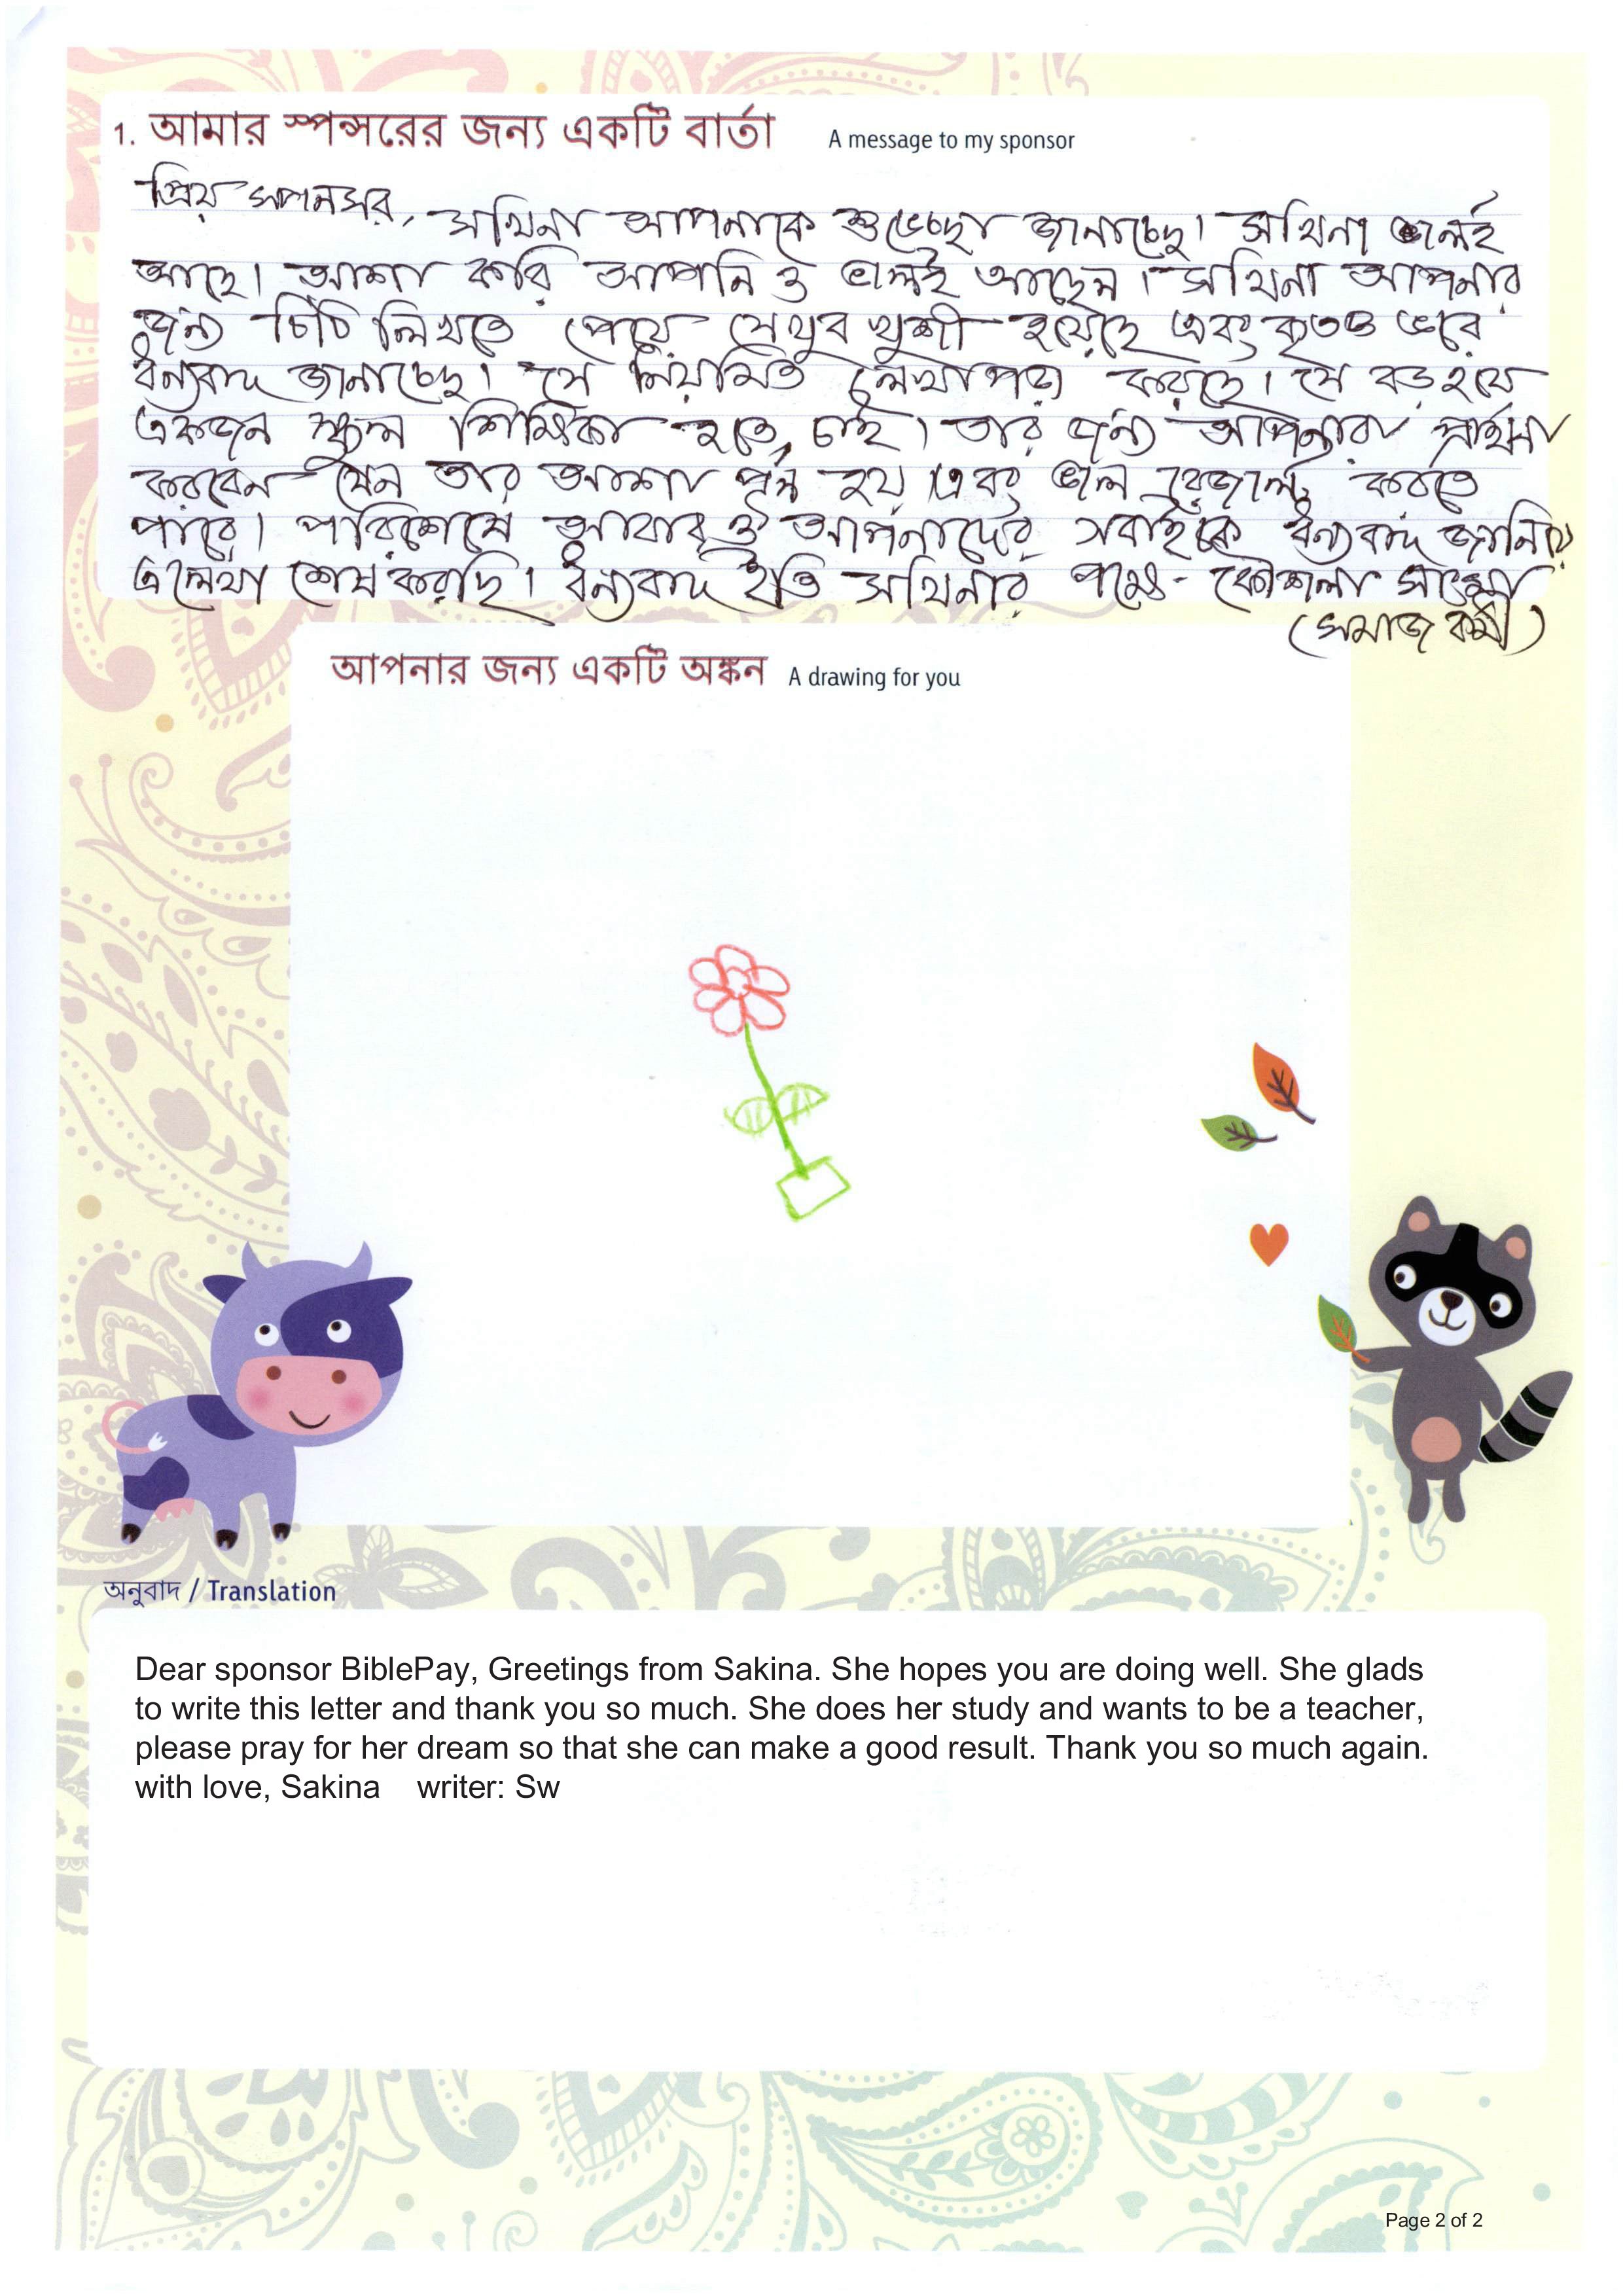 1. আমার স্পন্সরের জন্য একটি বার্তা A message to my sponsor
প্রিয় সপনসর, সখিনা আপনাকে শুভেচ্ছা জানাচ্ছে। সখিনা ভালই
আছে। আশা করি আপনি ও ভালই আছেন। সখিনা আপনার
জন্য চিঠি লিখতে পেয়ে সে খুব খুশী হয়েছে এবং কৃতজ্ঞ ভরে
ধন্যবাদ জানাচ্ছে। সে নিয়মিত লেখাপড়া করছে। সে বড় হয়ে
একজন স্কুল শিক্ষিকা হতে চাই। তার জন্য আপনারা প্রার্থনা
করবেন যেন তার আশা পূর্ন হয় এবং ভাল রেজাল্ট করতে
পারে। পরিশেষে আবার ও আপনাদের সবাইকে ধন্যবাদ জানিয়ে
এ লেখা শেষ করছি। ধন্যবাদ ইতি সখিনার পক্ষে - কৌশলা
(সমাজ কর্মী)
আপনার জন্য একটি অঙ্কন A drawing for you
অনুবাদ / Translation
Dear sponsor BiblePay, Greetings from Sakina. She hopes you are doing well. She glads
to write this letter and thank you so much. She does her study and wants to be a teacher,
please pray for her dream so that she can make a good result. Thank you so much again.
with love, Sakina writer: Sw
Page 2 of 2